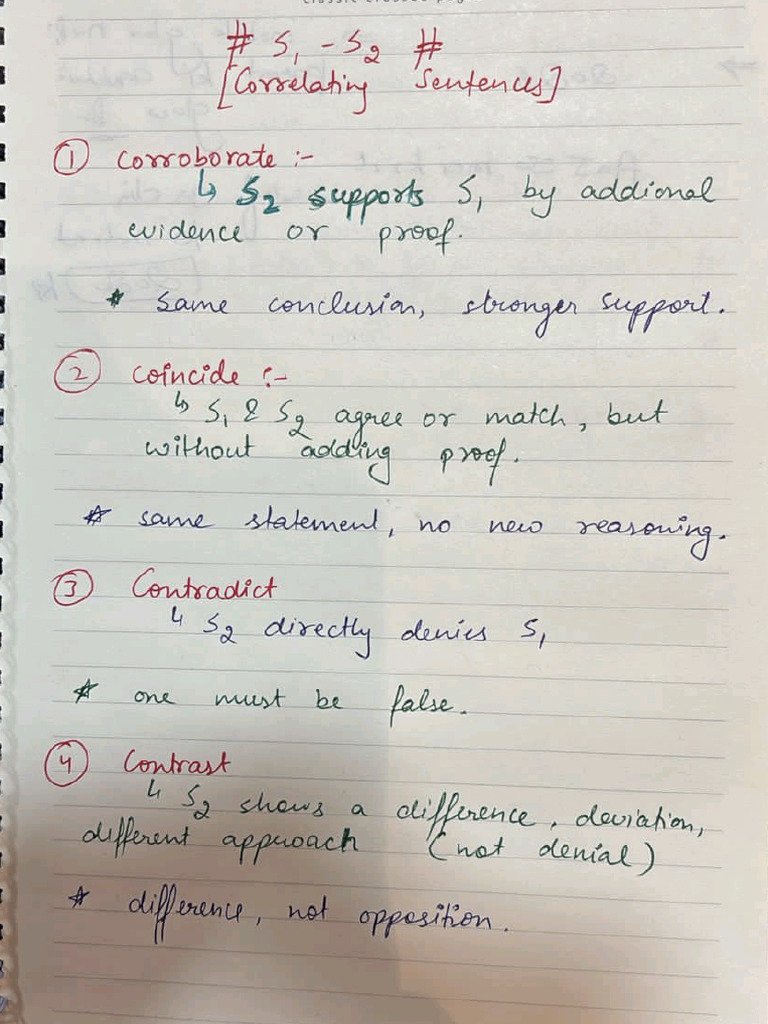 # S₁ - S₂ #
[Correlating Sentences]
① Corroborate :-
↳ S₂ supports S₁ by addional
evidence or proof.
* same conclusion, stronger support.
② Coincide :-
↳ S₁ & S₂ agree or match, but
without adding proof.
* same statement, no new reasoning.
③ Contradict
↳ S₂ directly denies S₁
* one must be false.
④ Contrast
↳ S₂ shows a difference, deviation,
different approach (not denial)
* difference, not opposition.